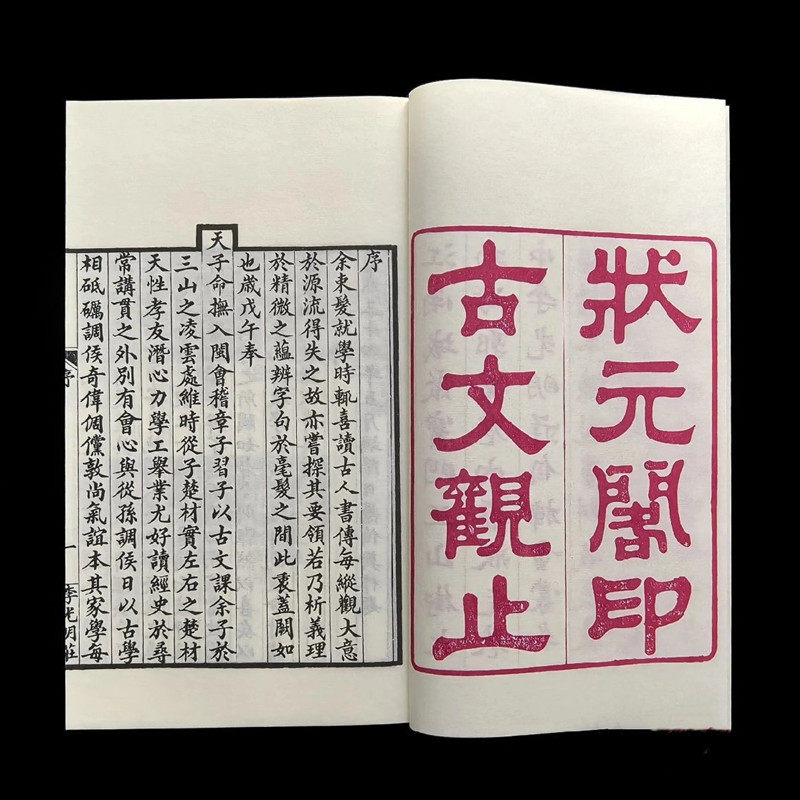 狀元閣印
古文觀止
序
余束髮就學時輒喜讀古人書傳每縱觀大意
於源流得失之故亦嘗探其要領若乃析義理
於精微之蘊辨字句於毫髮之間此衷蓋闕如
也歲戊午奉
天子命撫入閩會稽章子習子以古文課余子於
三山之凌雲處維時從子楚材實左右之楚材
天性孝友潛心力學工舉業尤好讀經史於尋
常講貫之外別有會心與從孫調侯日以古學
相砥礪調侯奇偉倜儻敦尚氣誼本其家學每
序
一
李光明莊